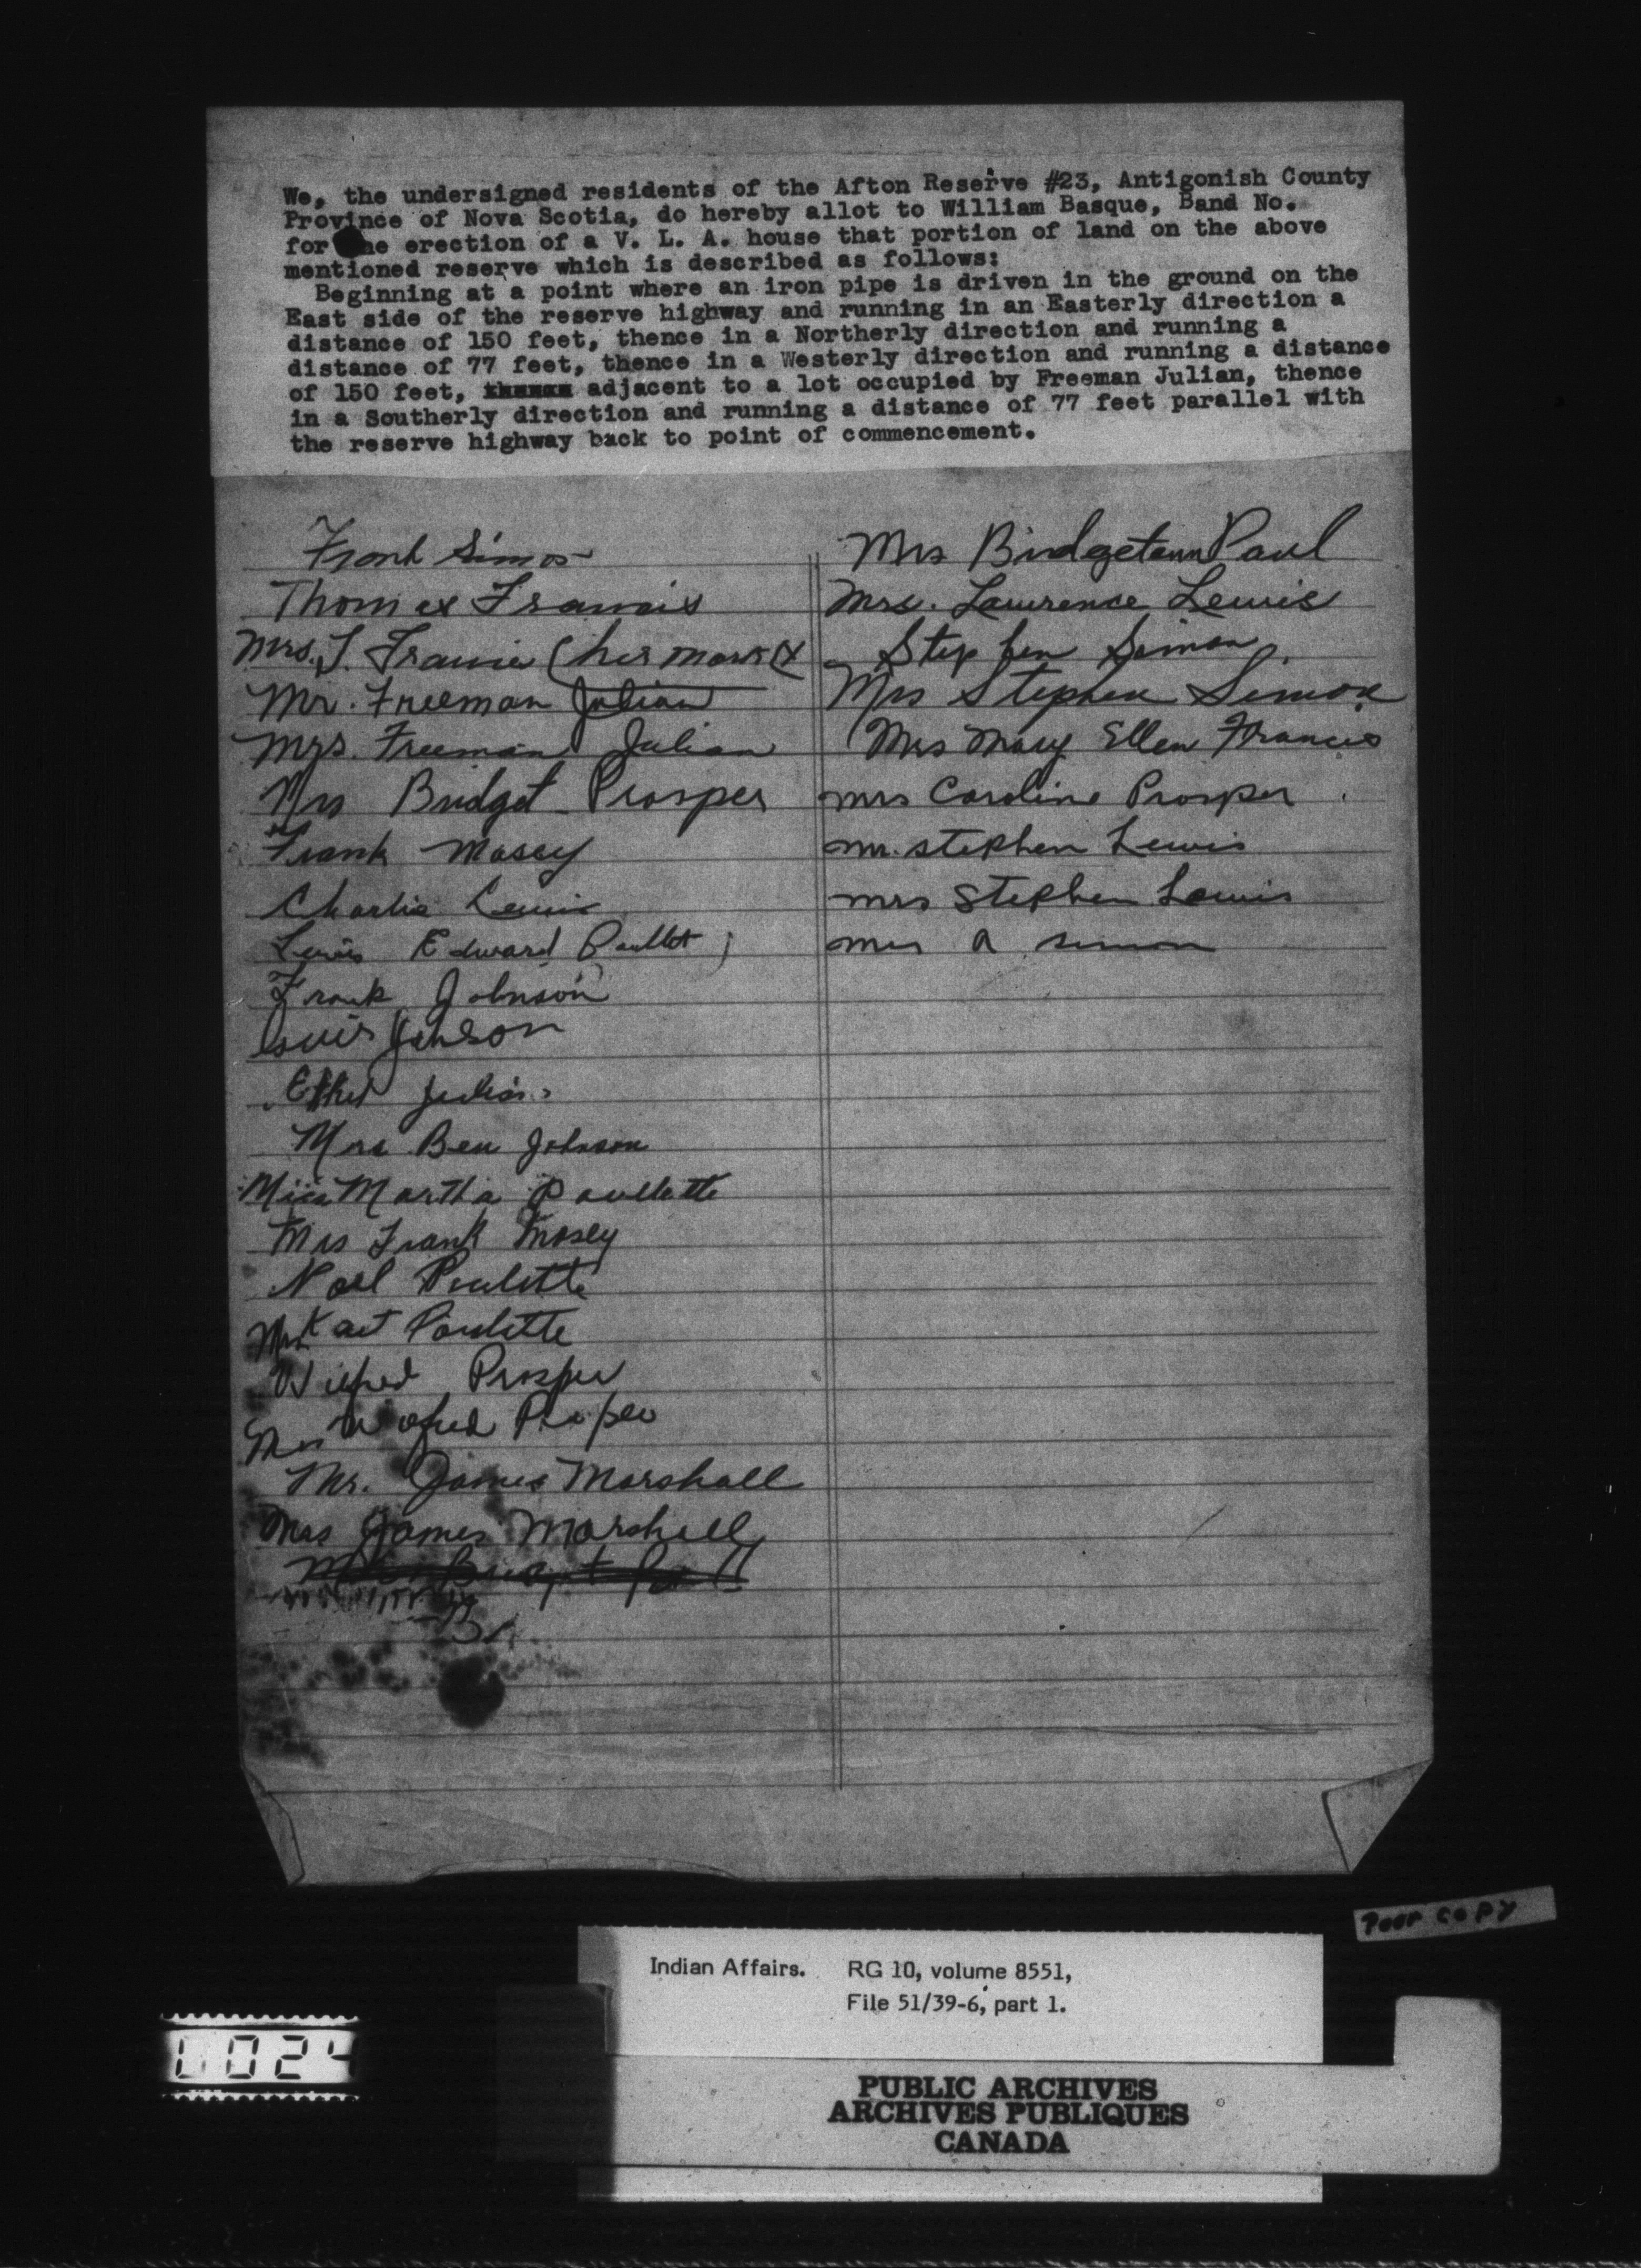 We, the undersigned residents of the Afton Reserve #23, Antigonish County
Province of Nova Scotia, do hereby allot to William Basque, Band No.
for the erection of a V. L. A. house that portion of land on the above
mentioned reserve which is described as follows:
Beginning at a point where an iron pipe is driven in the ground on the
East side of the reserve highway and running in an Easterly direction a
distance of 150 feet, thence in a Northerly direction and running a
distance of 77 feet, thence in a Westerly direction and running a distance
of 150 feet, adjacent to a lot occupied by Freeman Julian, thence
in a Southerly direction and running a distance of 77 feet parallel with
the reserve highway back to point of commencement.
Frank Simon
Thomas Francis
Mrs. T. Francis (her mark X
Mr. Freeman Julian
Mrs. Freeman Julian
Mrs Bridget Prosper
Frank Masey
Charlie Lewis
Lewis Edward Paullet
Frank Johnson
Louis Johson
Ethel Julian
Mrs Ben Johnson
Miss Martha Paullette
Mrs Frank Mosey
Noel Paulette
Mrs Paulette
Wilfred Prosper
Mrs Wilfred Prosper
Mr. James Marshall
Mrs James Marshall
Mrs Bridgetann Paul
Mrs. Lawrence Lewis
Stephen Simon
Mrs Stephen Simon
Mrs Mary Ellen Francis
mrs Caroline Prosper
mr. stephen Lewis
mrs Stephen Lewis
mrs a simon
Poor copy
Indian Affairs. RG 10, volume 8551,
File 51/39-6, part 1.
0024
PUBLIC ARCHIVES
ARCHIVES PUBLIQUES
CANADA